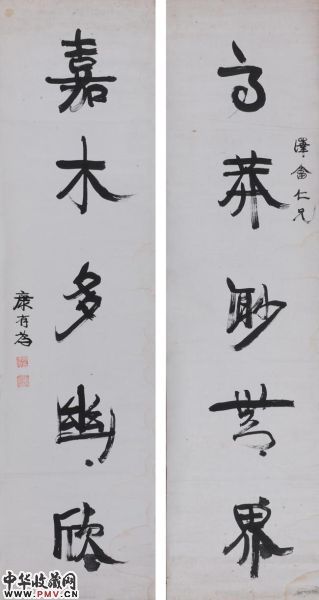 高莽眇無界
澤畬仁兄
嘉木多幽欣
康有為
中华收藏网
www.PMV.CN